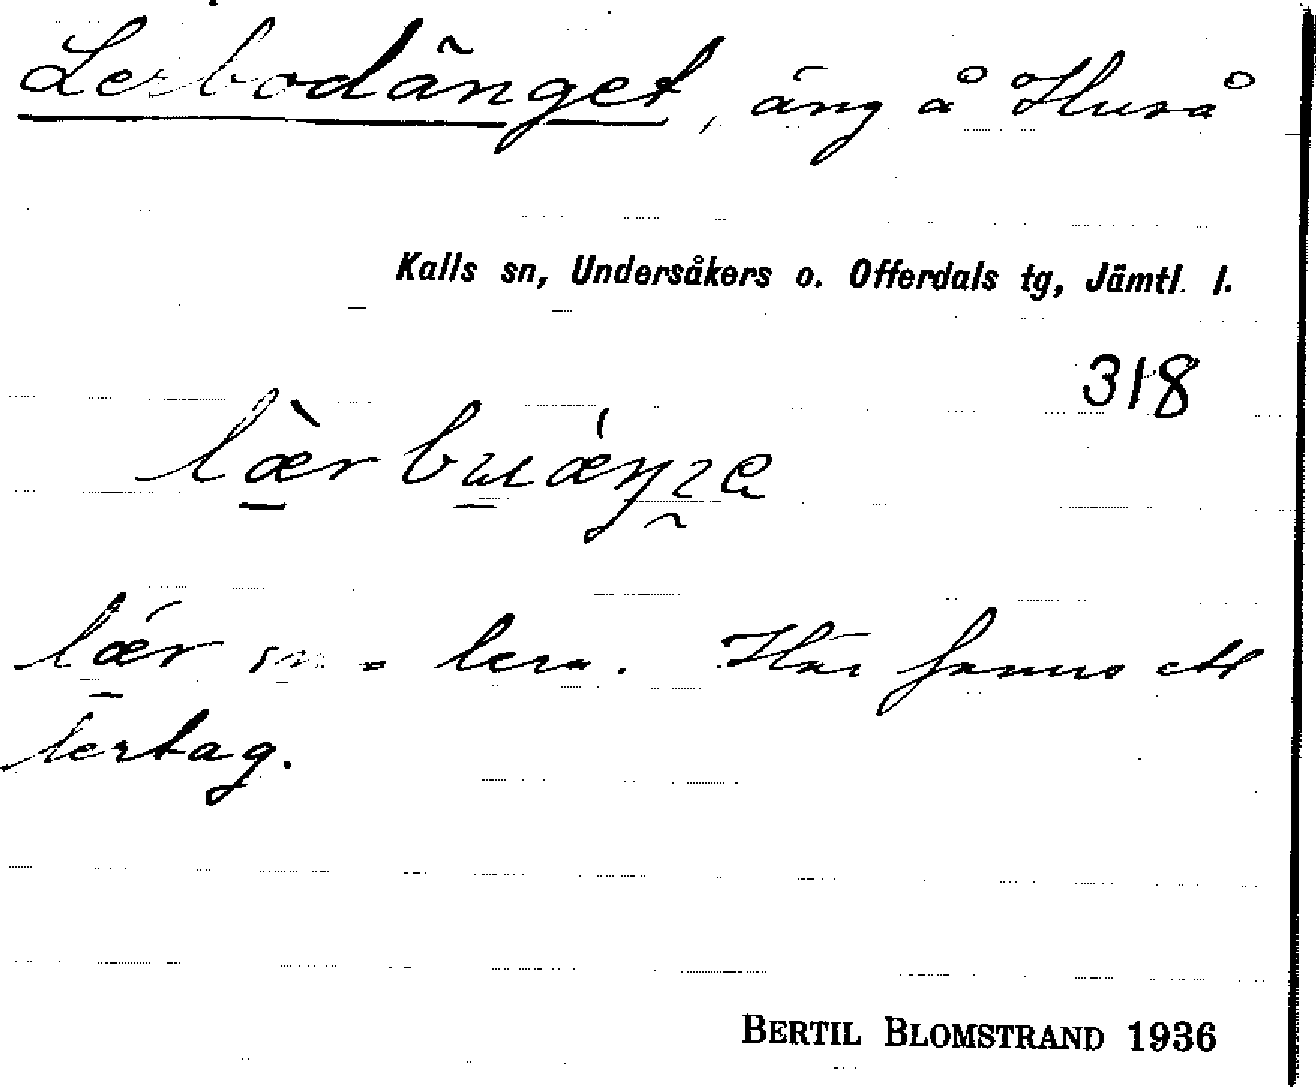 Lerbodänget, äng å Huså
Kalls sn, Undersåkers o. Offerdals tg, Jämtl. l.
318
lær sn = lera. Här finns ett
lertag.
BERTIL BLOMSTRAND 1936